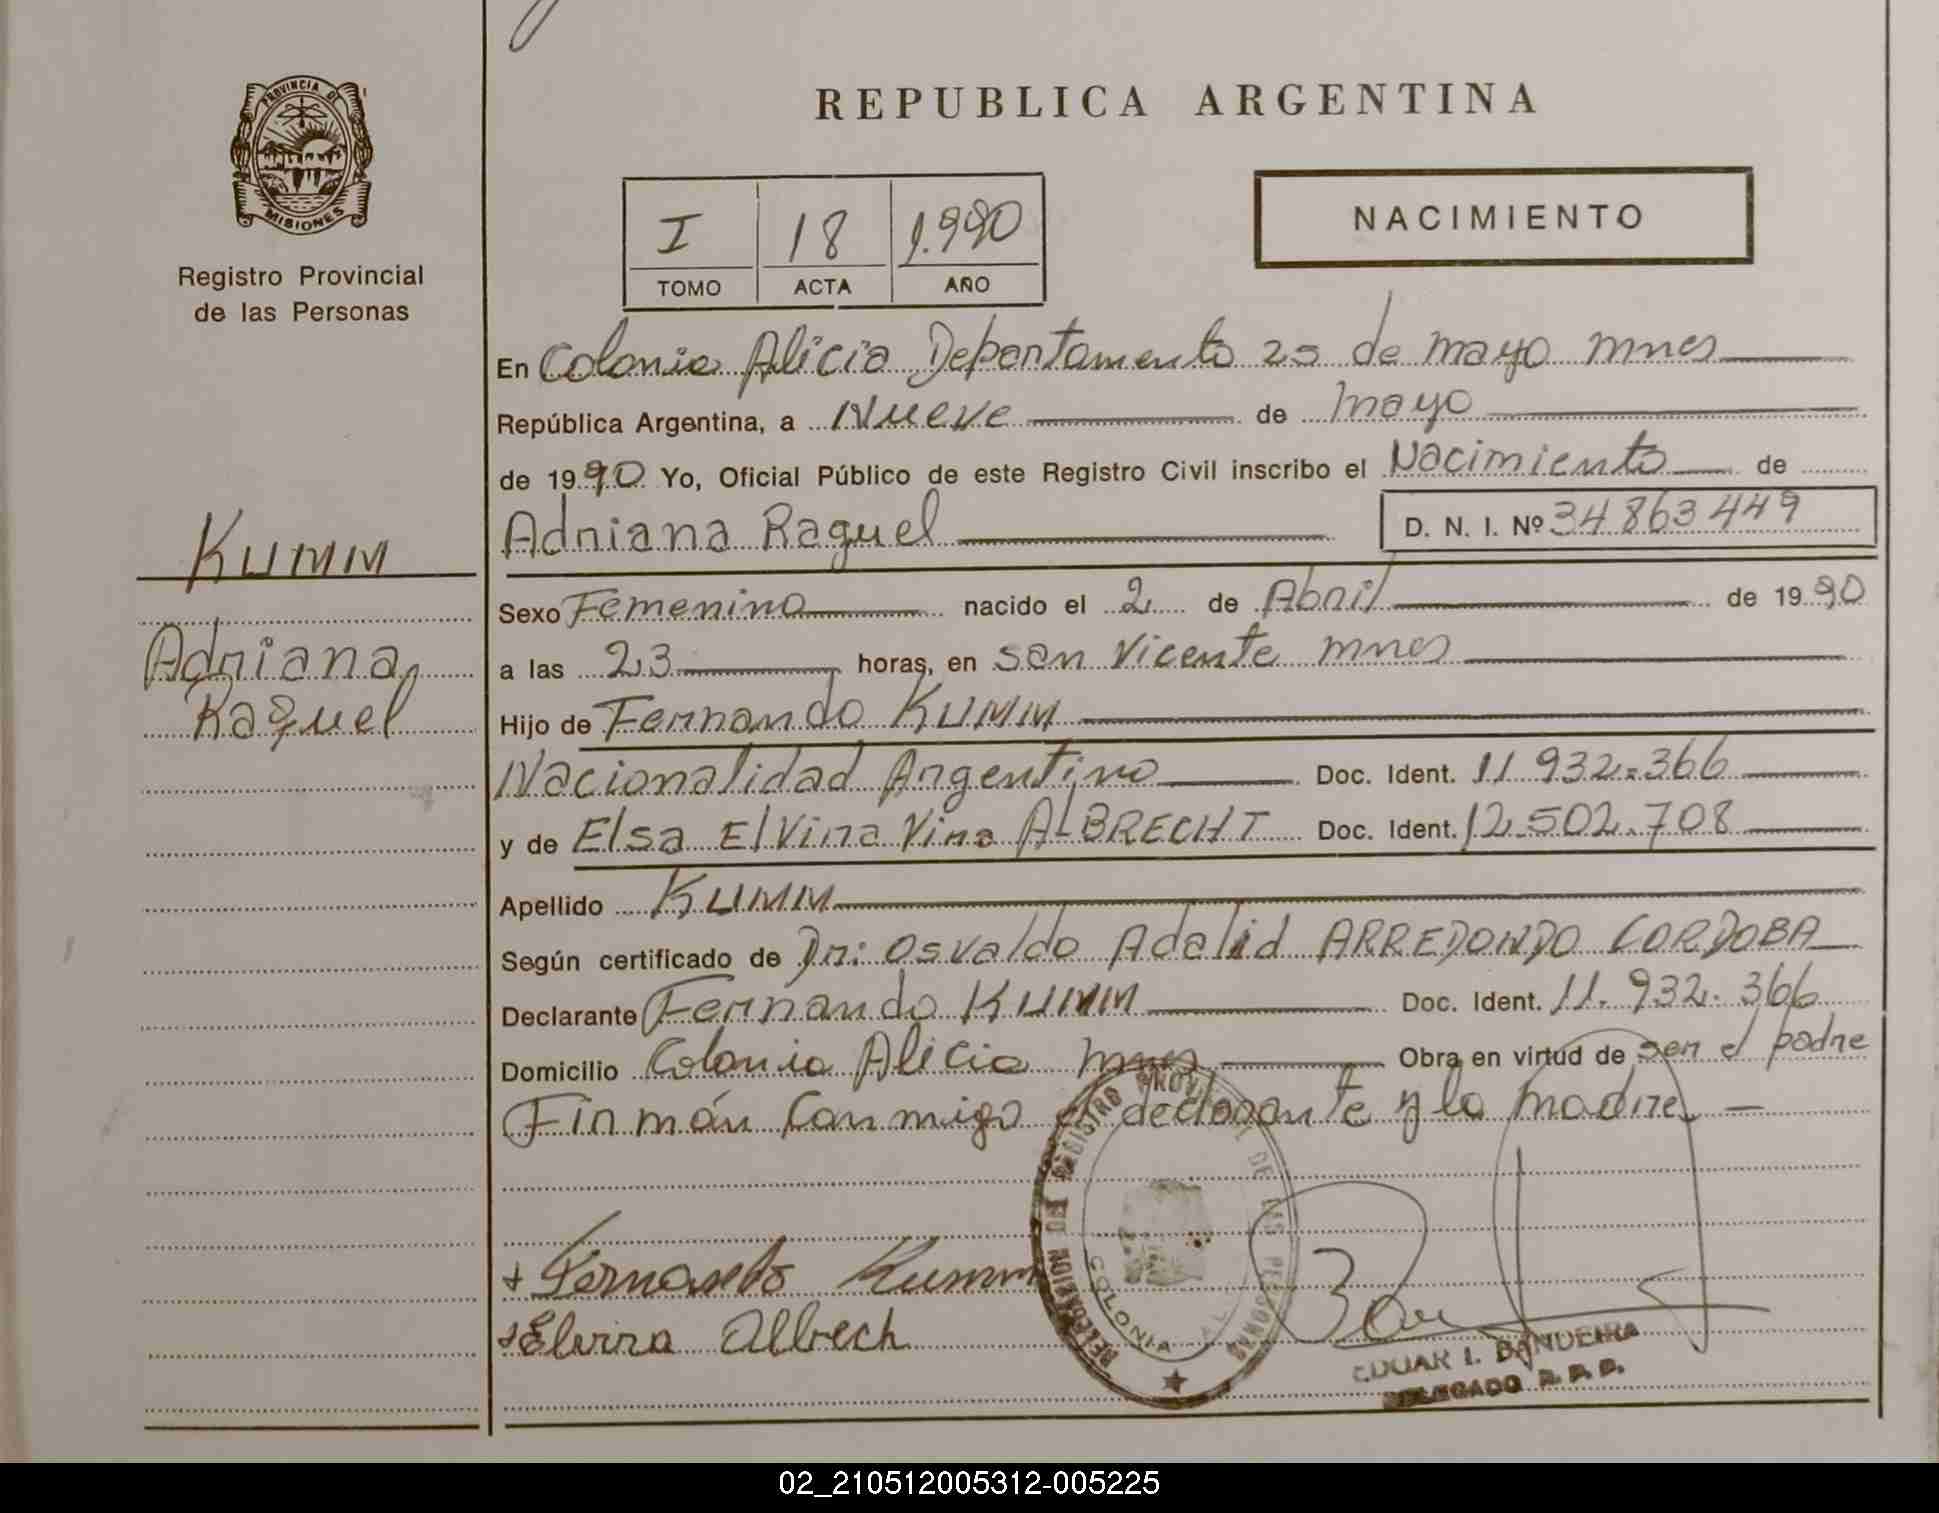 REPUBLICA ARGENTINA
PROVINCIA DE
MISIONES
Registro Provincial
de las Personas
I 18 1.990
TOMO ACTA AÑO
NACIMIENTO
En Colonia Alicia Departamento 25 de mayo mnes
República Argentina, a Nueve de mayo
de 1990 Yo, Oficial Público de este Registro Civil inscribo el Nacimiento de
Adriana Raquel D. N. I. Nº 34863449
KUMM
Adriana
Raquel
Sexo Femenino nacido el 2 de Abril de 1990
a las 23 horas, en san Vicente mnes
Hijo de Fernando KUMM
Nacionalidad Argentino Doc. Ident. 11.932.366
y de Elsa Elvira ALBRECHT Doc. Ident. 12.502.708
Apellido KUMM
Según certificado de Dr: Osvaldo Adalid ARREDONDO CORDOBA
Declarante Fernando KUMM Doc. Ident. 11.932.366
Domicilio Colonia Alicia mnes Obra en virtud de ser el padre
Firmán conmigo el declarante y la madre
DELEGACION DEL REGISTRO PROV. DE LAS PERSONAS
COLONIA AL
+ Fernando Kumm
+ Elvira Albrech
EDUAR I. BANDEIRA
DELEGADO R. P. P.
02_210512005312-005225